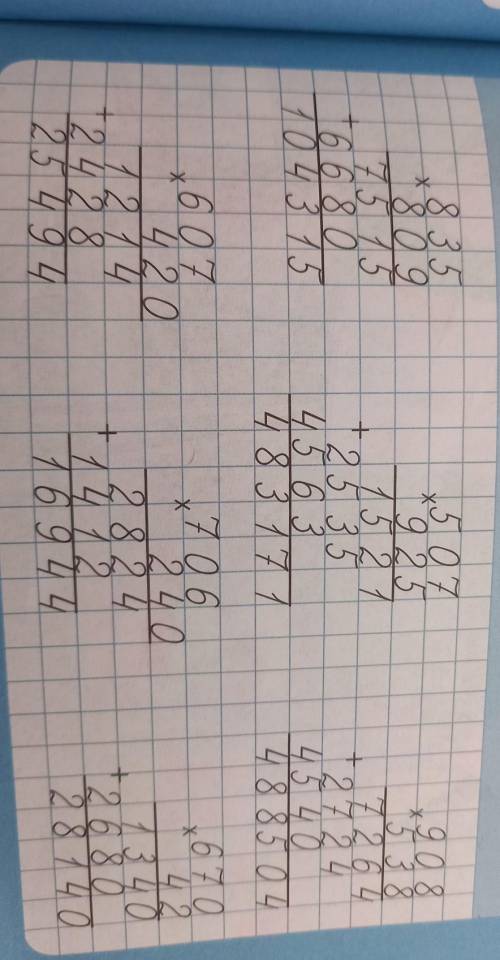 835
×809
7515
+6680
104315
507
×925
1521
+2535
4563
483171
908
×538
7264
+2724
4540
488504
×607
420
1214
+2428
25494
×706
240
2824
+1412
16944
×670
42
1340
+2680
28140